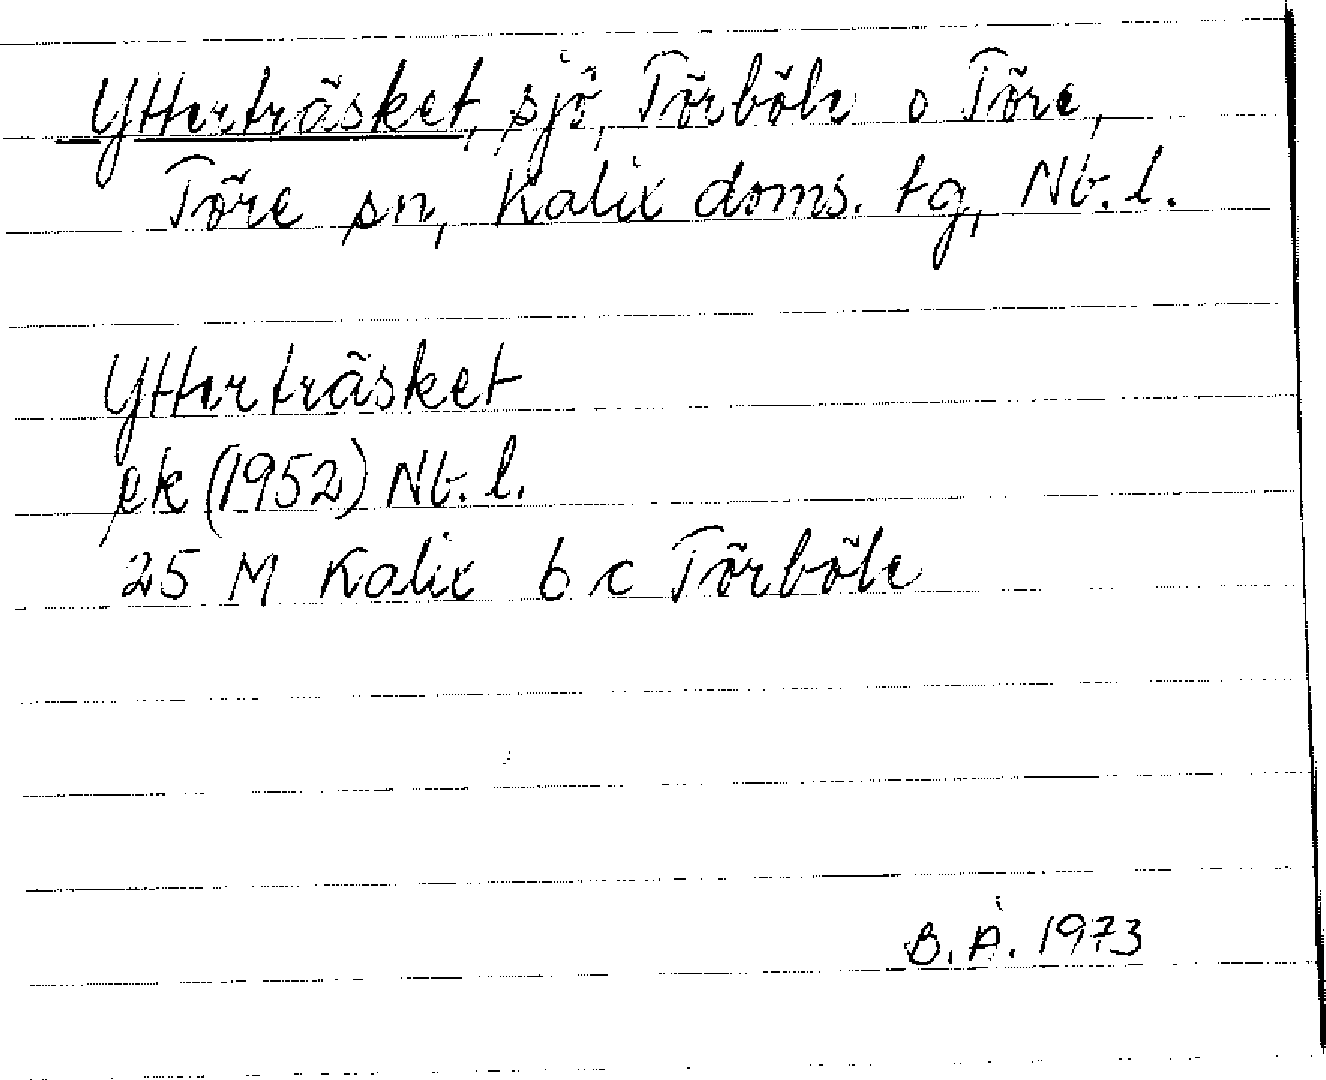 Ytterträsket, sjö, Törböle o Töre,
Töre sn, Kalix doms. tg, Nb. l.
Ytterträsket
ek (1952) Nb. l.
25 M Kalix b c Törböle
B. Å. 1973